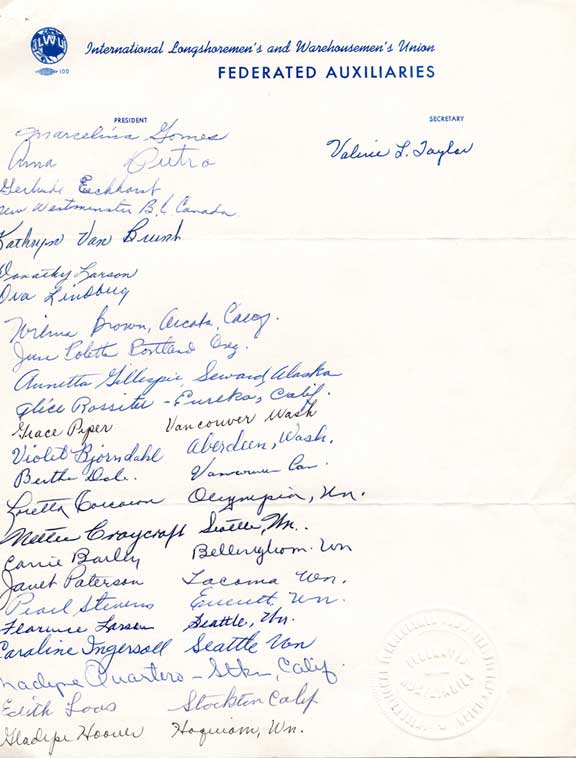 ILWU
100
International Longshoremen's and Warehousemen's Union
FEDERATED AUXILIARIES
PRESIDENT
SECRETARY
Marcelina Gomes
Valerie L. Taylor
Anna Outro
Gertrude Eichhorst
New Westminster B.C. Canada
Kathryn Van Brunt
Dorothy Larson
Eva Lindberg
Wilma Brown, Arcata, Calif.
June Poletti Portland Oreg.
Annetta Gillespie, Seward, Alaska
Alice Rossiter - Eureka, Calif.
Grace Piper Vancouver Wash
Violet Bjorndahl Aberdeen, Wash.
Bertha Dale. Vancouver Can.
Loretta Olympia, Wn.
Craycraft Seattle, Wn.
Carrie Barley Bellingham. Wn
Janet Paterson Tacoma Wn.
Pearl Stevens Everett, Wn.
Florence Larson Seattle, Wn.
Caroline Ingersoll Seattle Wn
Quartero - Stkn, Calif.
Edith Loos Stockton Calif
Hoover Hoquiam, Wn.